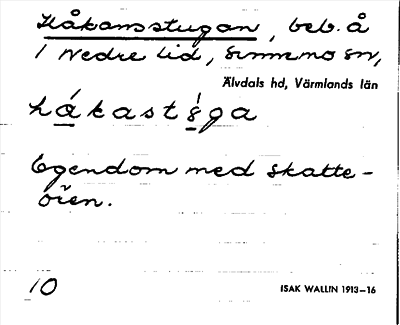 Håkansstugan, beb. å
1 Nedre Lid, Simmmo sn,
Älvdals hd, Värmlands län
hákast8ga
Egendom med skatte-
ören.
10
ISAK WALLIN 1913–16